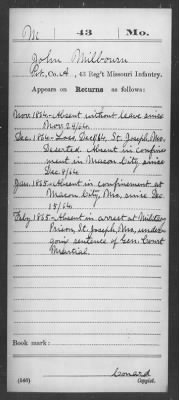 M | 43 | Mo.
John Milbourn
Pvt., Co. A, 43 Reg't Missouri Infantry.
Appears on Returns as follows:
Nov. 1864 - Absent without leave since
Nov 24/64
Dec. 1864 - Loss Dec 1/64, St. Joseph, Mo.
Deserted. Absent in confine-
ment in Macon City, since
Dec 9/64
Jan. 1865 - Absent in confinement at
Macon City, Mo, since Dec
15/64
Feby 1865 - Absent in arrest at Military
Prison, St. Joseph, Mo, under-
going sentence of Gen. Court
Martial.
Book mark:
Conard
(546) Copyist.